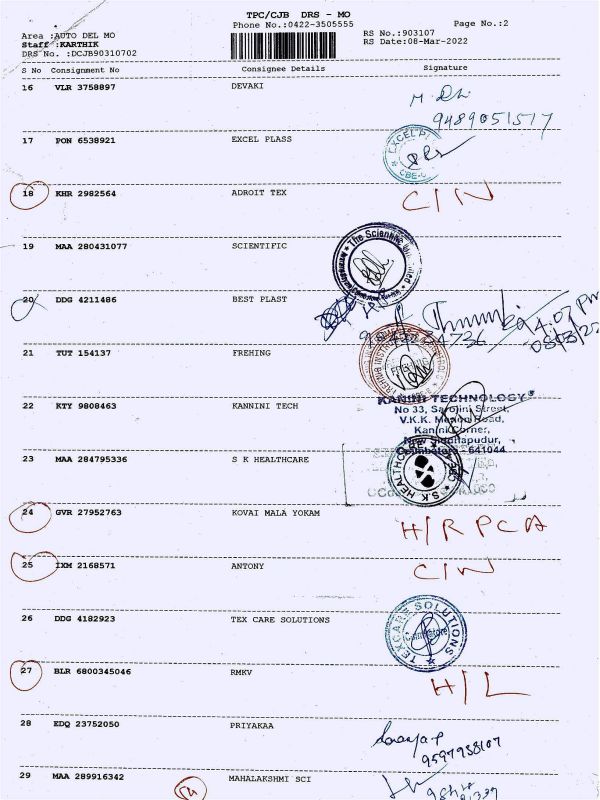 TPC/CJB DRS - MO
Phone No.:0422-3505555
Page No.:2
Area :AUTO DEL MO
Staff :KARTHIK
DRS No. :DCJB90310702
RS No.:903107
RS Date:08-Mar-2022
S No Consignment No Consignee Details Signature
16 VLR 3758897 DEVAKI
9489051517
17 PON 6538921 EXCEL PLASS
EXCEL
18 KHR 2982564 ADROIT TEX C/N
19 MAA 280431077 SCIENTIFIC
The Scientific
20 DDG 4211486 BEST PLAST
4.07 PM
21 TUT 154137 FREHING
22 KTY 9808463 KANNINI TECH
KANINI TECHNOLOGY
No 33, Sarojini Street,
V.K.K. Menon Road,
Kanini Corner,
New Siddhapudur,
Coimbatore - 641044
23 MAA 284795336 S K HEALTHCARE
S.K HEALTHCARE
24 GVR 27952763 KOVAI MALA YOKAM H/R PCA
25 IXM 2168571 ANTONY C/N
26 DDG 4182923 TEX CARE SOLUTIONS
TEXCARE SOLUTIONS
Coimbatore
27 BLR 6800345046 RMKV H/L
28 EDQ 23752050 PRIYAKAA
9597938107
29 MAA 289916342 MAHALAKSHMI SCI